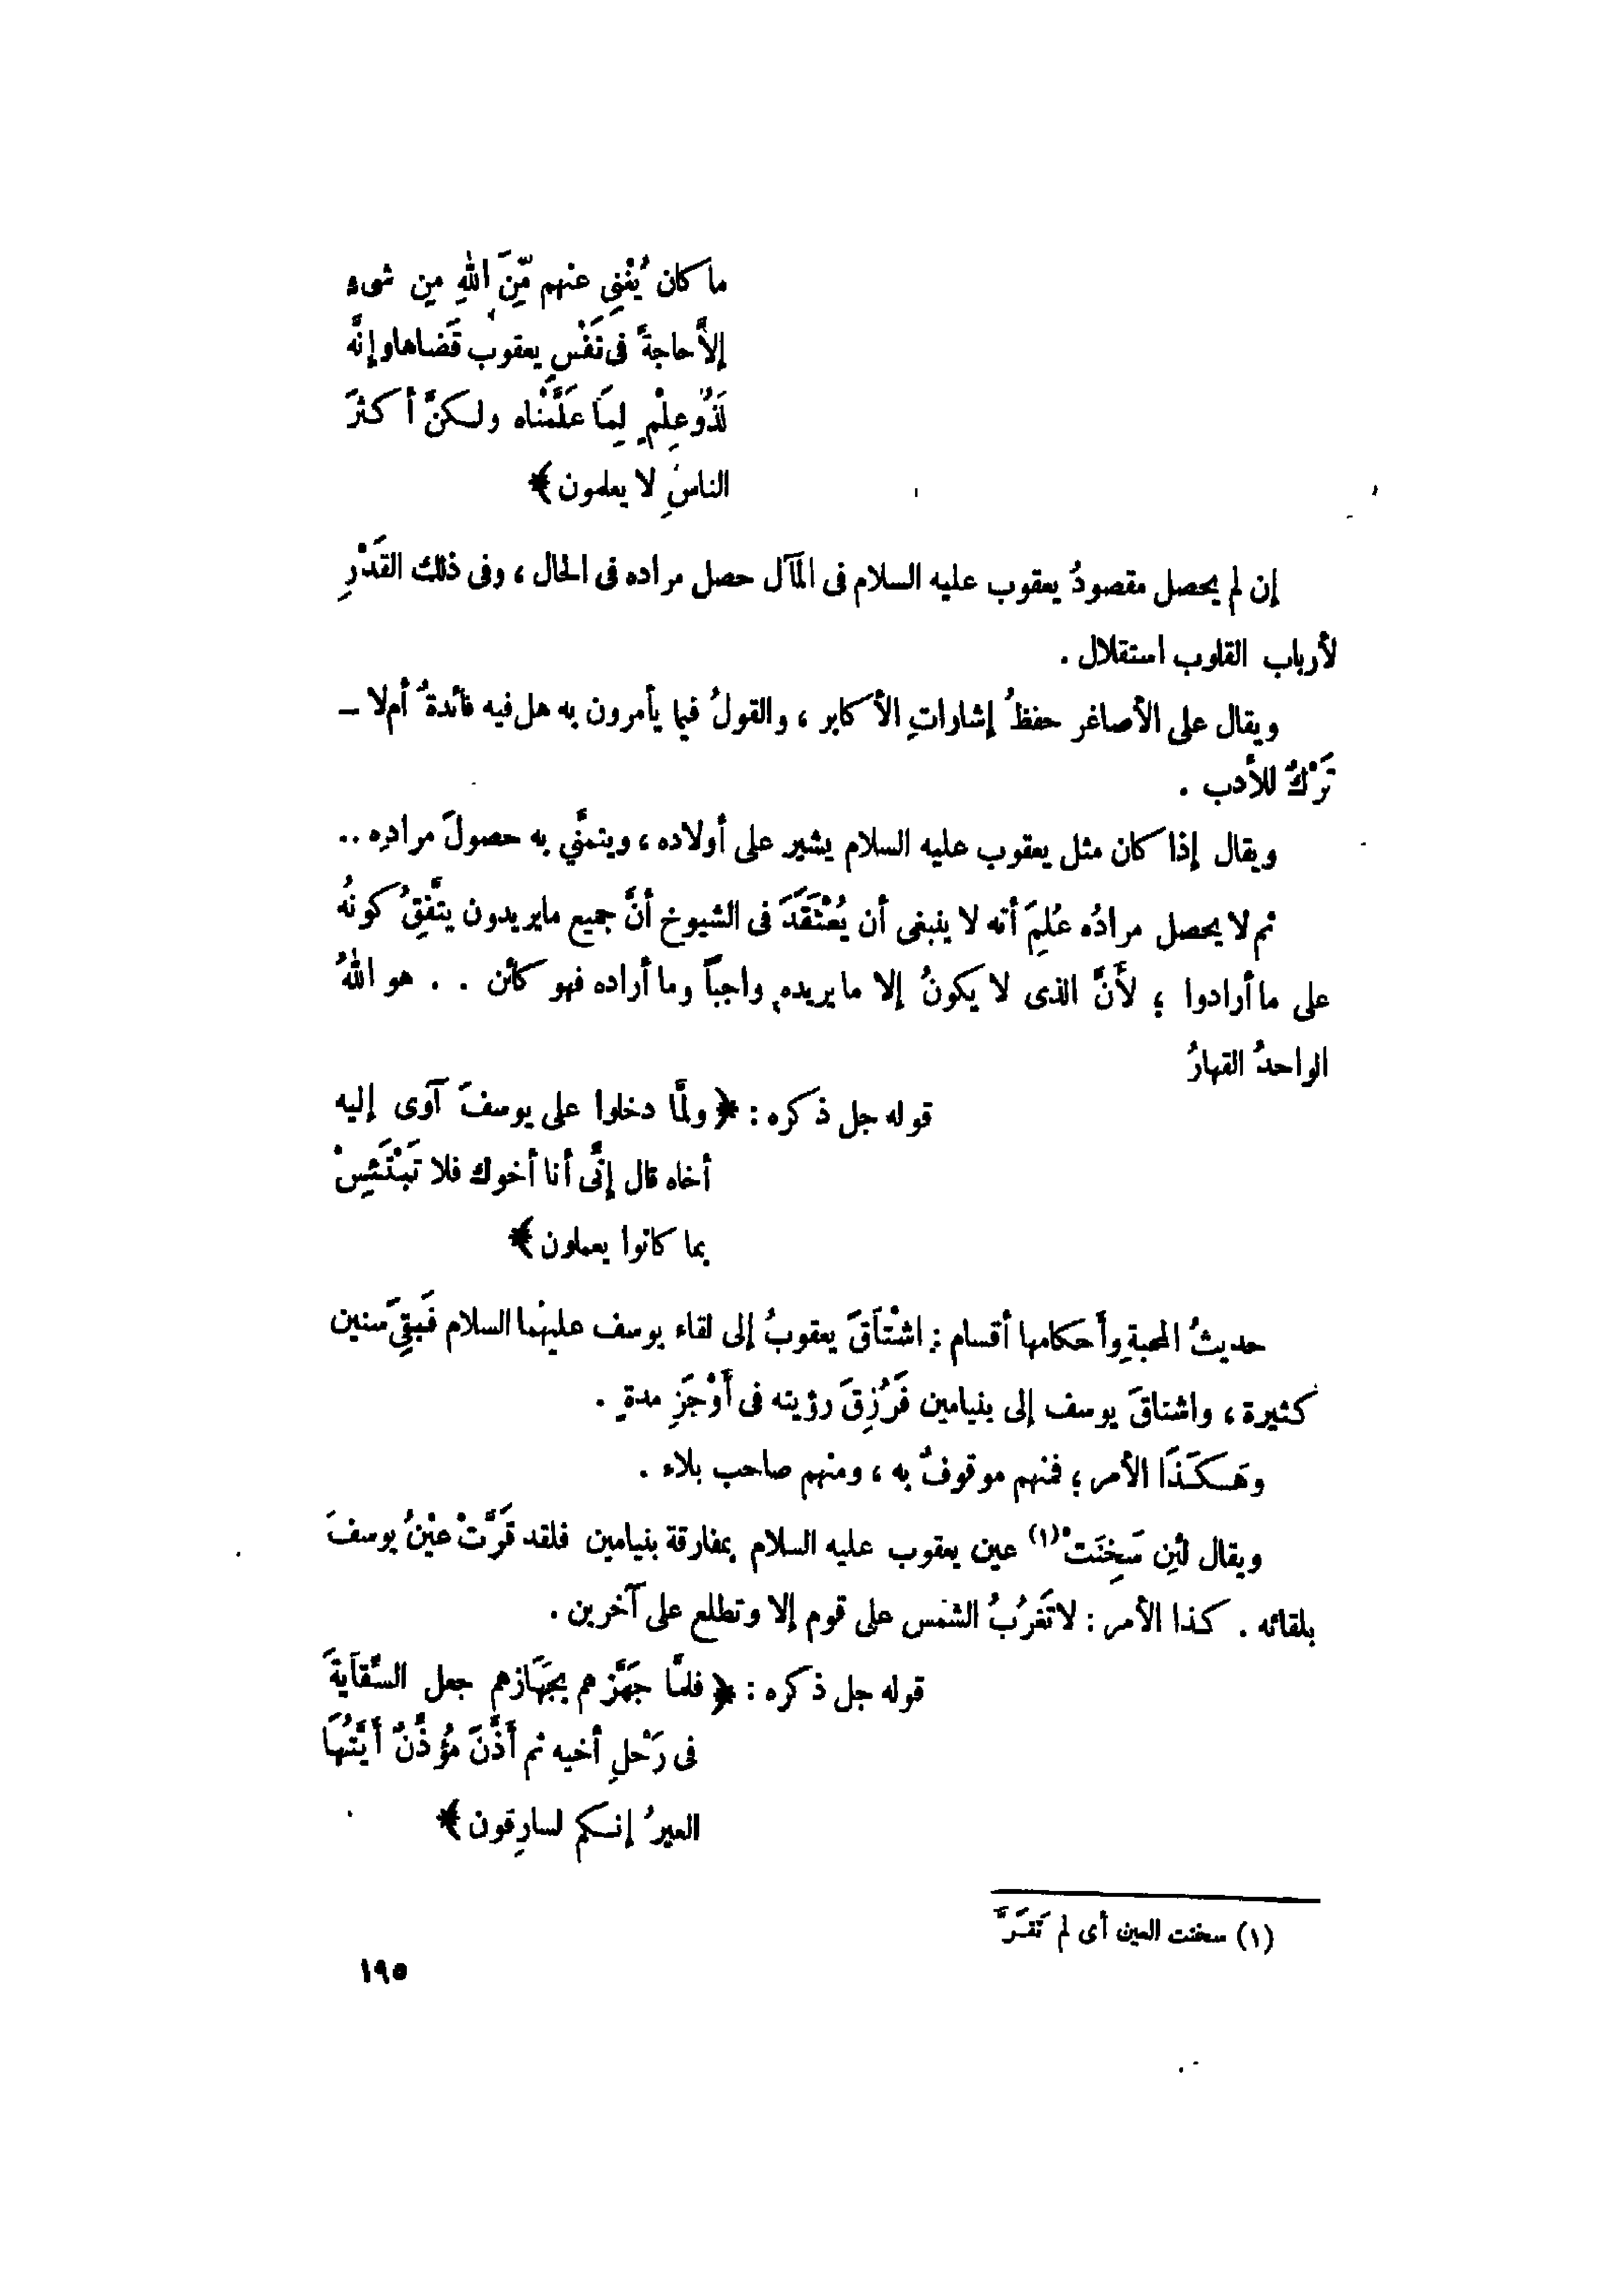 ما كان يُغْنِى عنهم مِّنَ اللهِ مِن شىء
إلاَّ حاجةً فى نَفْسِ يعقوب قَضاها وإنَّه
لَذُو عِلْمٍ لِمَا عَلَّمْناه ولكنَّ أكثرَ
الناسِ لا يعلمون ﴾
إن لم يحصل مقصودُ يعقوب عليه السلام فى المآل حصل مراده فى الحال ، وفى ذلك القَدْرِ
لأرباب القلوب استقلال .
ويقال على الأصاغر حفظُ إشاراتِ الأكابر ، والقولُ فيما يأمرون به هل فيه فائدةٌ أم لا –
تَرْكٌ للأدب .
ويقال إذا كان مثل يعقوب عليه السلام يشير على أولاده ، ويتمنَّى به حصولَ مرادِه ..
ثم لا يحصل مرادُه عُلِمَ أنه لا ينبغى أن يُعْتَقَدَ فى الشيوخ أنَّ جميع ما يريدون يتَّفِقُ كونُه
على ما أرادوا ؛ لأَنَّ الذى لا يكونُ إلا ما يريده واجباً وما أراده فهو كائن . . هو اللهُ
الواحدُ القهارُ
قوله جل ذكره : ﴿ ولمَّا دخلوا على يوسفَ آوى إليه
أخاه قال إنِّى أنا أخوك فلا تَبْتَئِسْ
بما كانوا يعملون ﴾
حديثُ المحبةِ وأحكامها أقسام : اشْتَاقَ يعقوبُ إلى لقاء يوسف عليهما السلام فَبَقِىَ سنين
كثيرة ، واشتاقَ يوسف إلى بنيامين فَرُزِقَ رؤيته فى أَوْجَزِ مدةٍ .
وهَكَذَا الأمر ؛ فمنهم موقوفٌ به ، ومنهم صاحب بلاء .
ويقال لئِن سَخِنَتْ(١) عين يعقوب عليه السلام بمفارقة بنيامين فلقد قَرَّتْ عيْنُ يوسفَ
بلقائه . كذا الأمر : لا تَغْرُبُ الشمس على قوم إلا وتطلع على آخرين .
قوله جل ذكره : ﴿ فلمَّا جهَّزهم بجَهَازهم جعل السِّقَايةَ
فى رَحْلِ أخيه ثم أَذَّنَ مُؤَذِّنٌ أيَّتُها
العيرُ إنكم لسارِقون ﴾
(١) سخنت العين أى لم تَقَرَّ
١٩٥